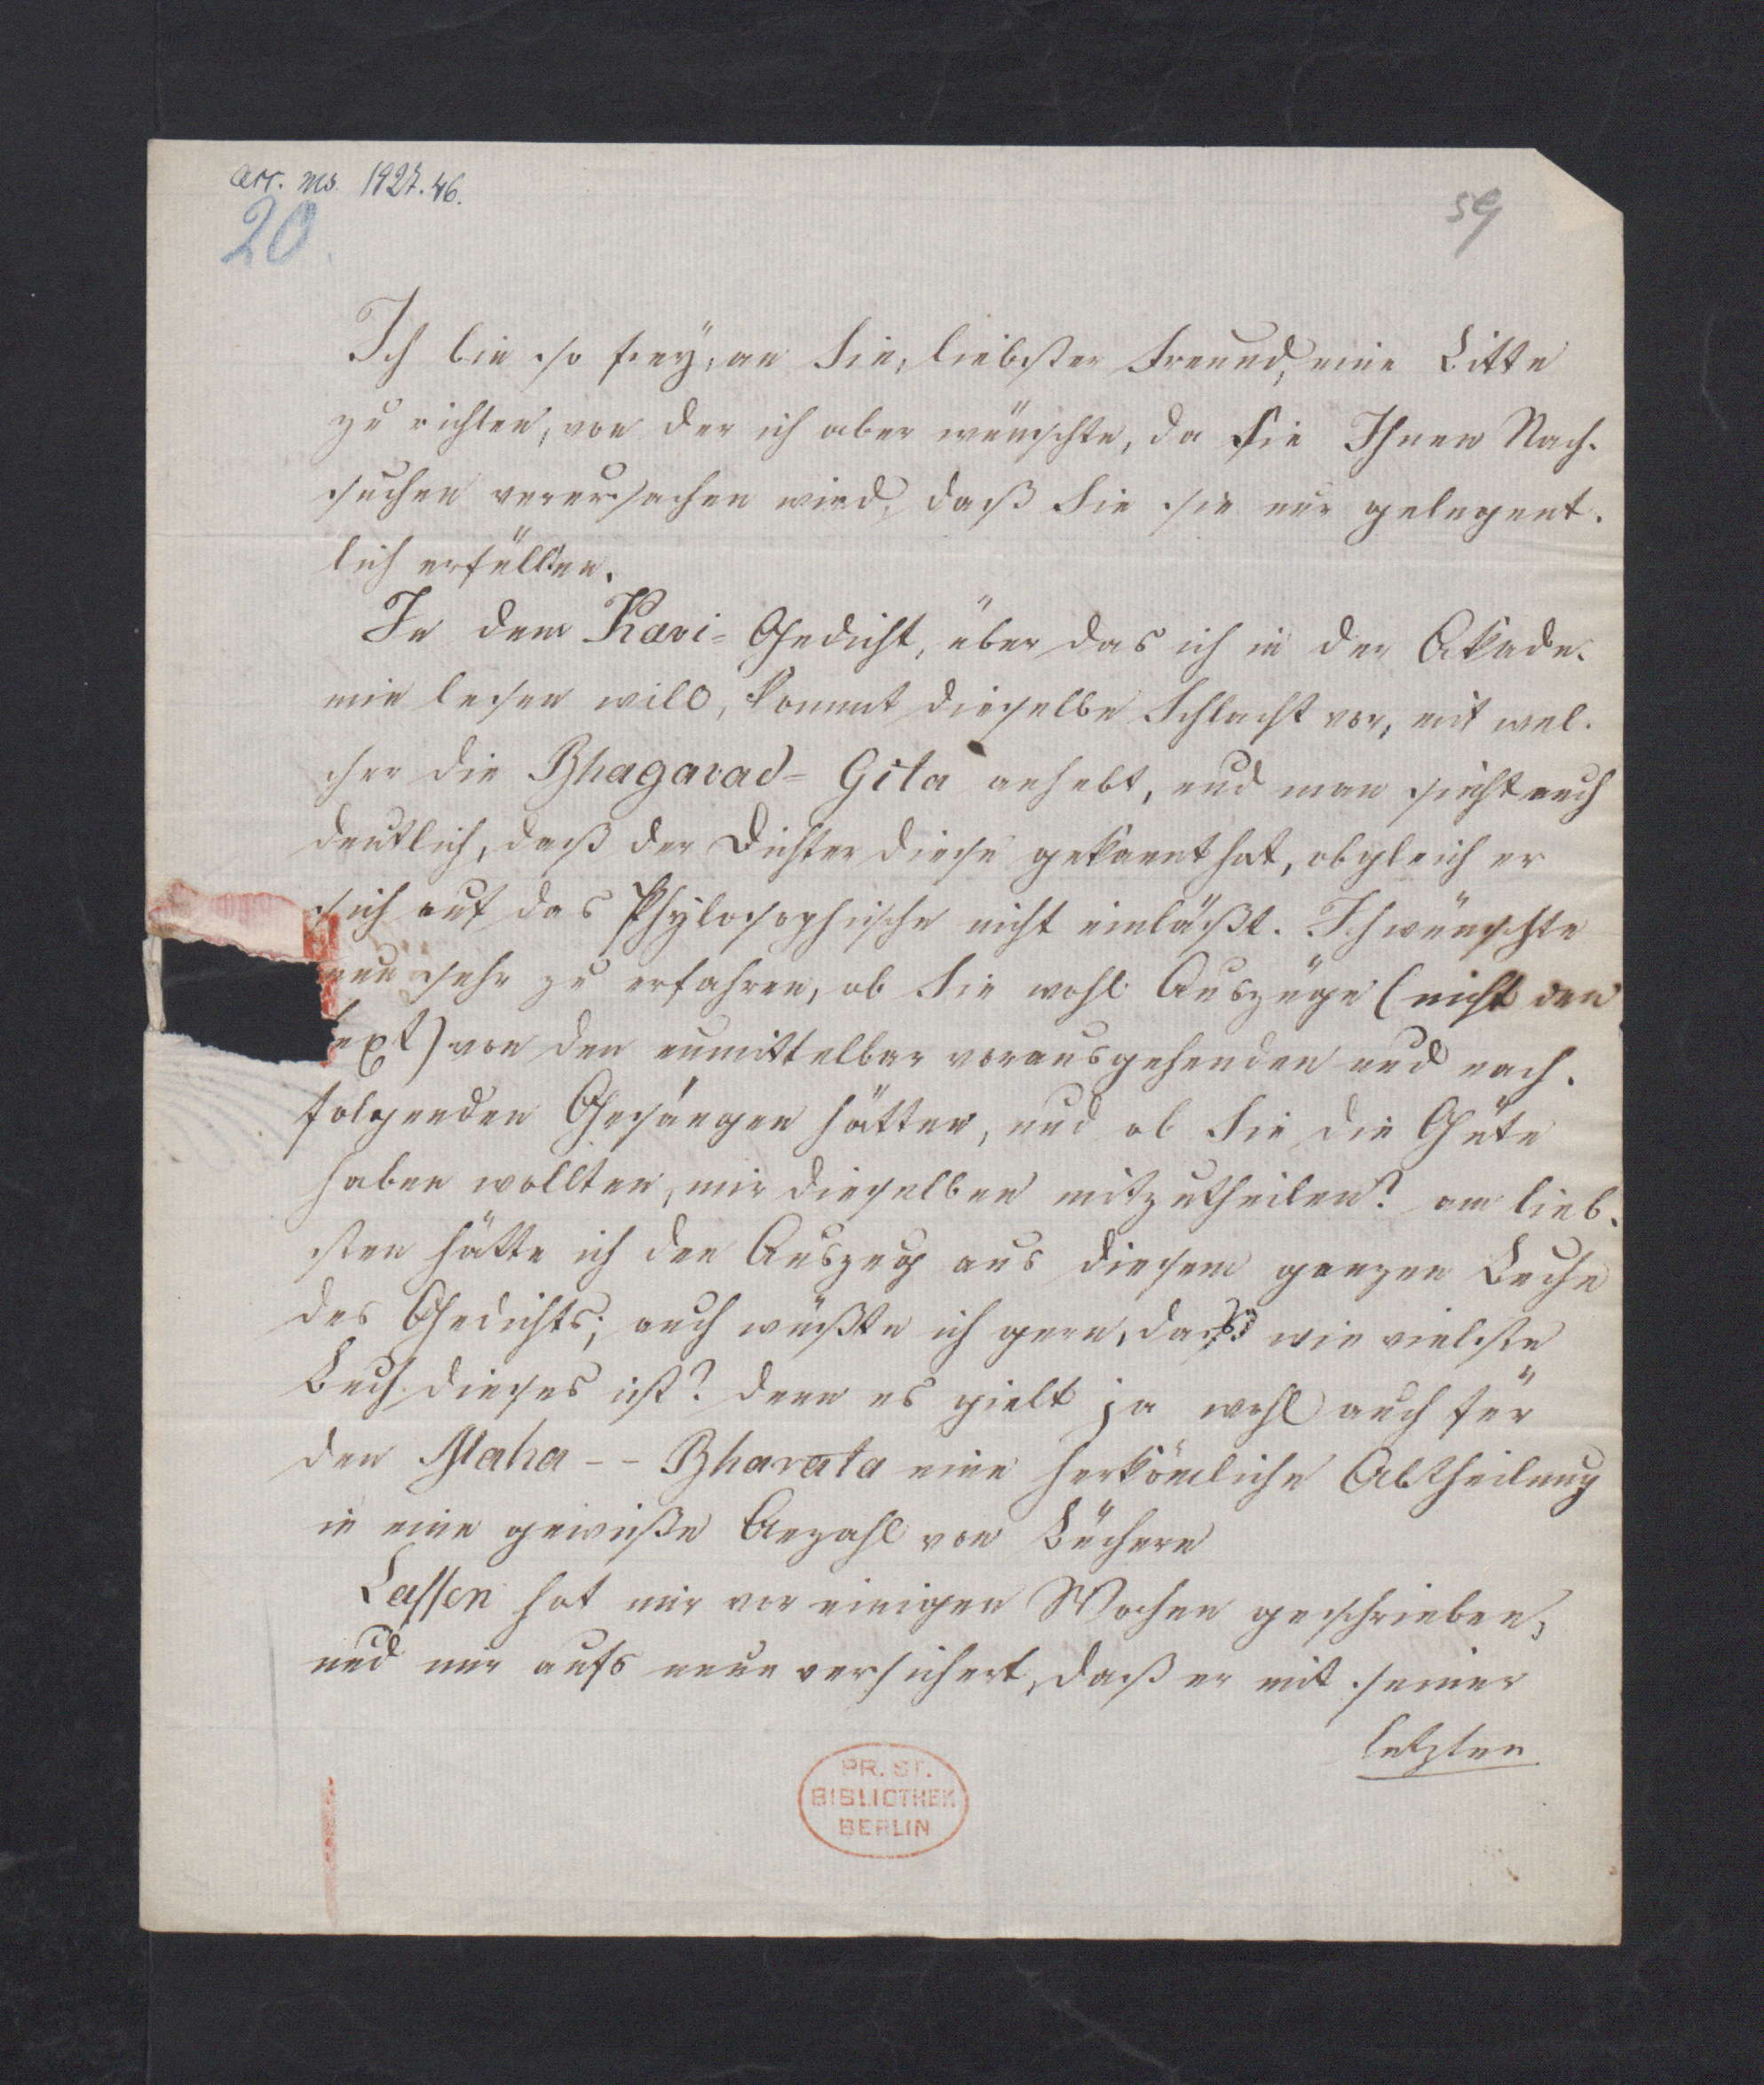 acc. ms. 1927. 46.
20.
59
Ich bin so frey, an Sie, liebster Freund, eine Bitte
zu richten, von der ich aber wünschte, da sie Ihnen Nach-
suchen verursachen wird, daß Sie sie nur gelegent-
lich erfüllten.
In dem Kavi-Gedicht, über das ich in der Akade-
mie lesen will, kommt dieselbe Schlacht vor, mit wel-
cher die Bhagavad-Gita anhebt, und man sieht auch
deutlich, daß der Dichter diese gekannt hat, obgleich er
sich auf das Phylosophische nicht einläßt. Ich wünschte
nun sehr zu erfahren, ob Sie wohl Auszüge (nicht den
text) von den unmittelbar vorausgehenden und nach-
folgenden Gesängen hätten, und ob Sie die Güte
haben wollten, mir dieselben mitzutheilen? am lieb-
sten hätte ich den Auszug aus diesem ganzen Buche
des Gedichts; auch wüßte ich gern, das wie vielste
Buch dieses ist? denn es gielt ja wohl auch für
den Maha--Bharata eine herkömliche Abtheilung
in eine gewiße Anzahl von Büchern
Lassen hat mir vor einigen Wochen geschrieben,
und mir aufs neue versichert, daß er mit seiner
letzten
PR. ST.
BIBLIOTHEK
BERLIN